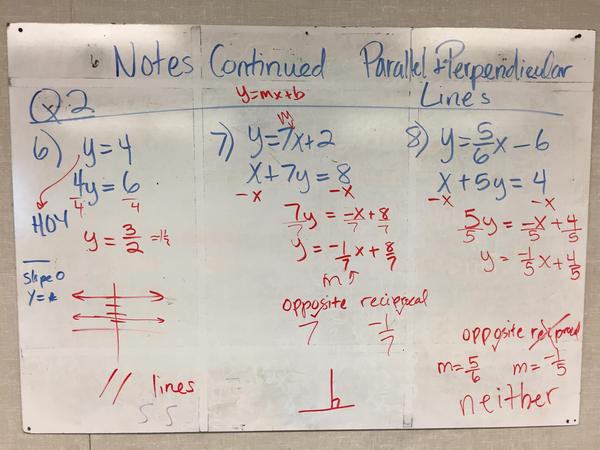 Notes Continued Parallel + Perpendicular
Lines
Q2
y=mx+b
6) y=4
4y=6
4 4
HOY
y=3/2=1½
Slope 0
y=*
// lines
5 5
m
7) y=7x+2
x+7y=8
-x -x
7y=-x+8
7 7 7
y=-1/7x+8/7
m
opposite reciprocal
7 -1/7
8) y=5/6x-6
x+5y=4
-x -x
5y=-x+4
5 5 5
y=-1/5x+4/5
opposite reciprocal
m=5/6 m=-1/5
neither